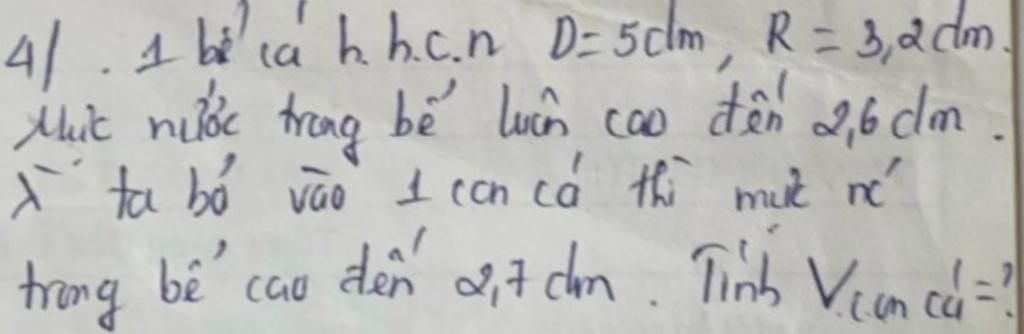 4/. 1 bể cá h.h.c.n D = 5dm, R = 3,2dm.
Mực nước trong bể luôn cao đến 2,6 dm.
ta bỏ vào 1 con cá thì mực nc'
trong bể cao đến 2,7 dm. Tính V con cá = ?